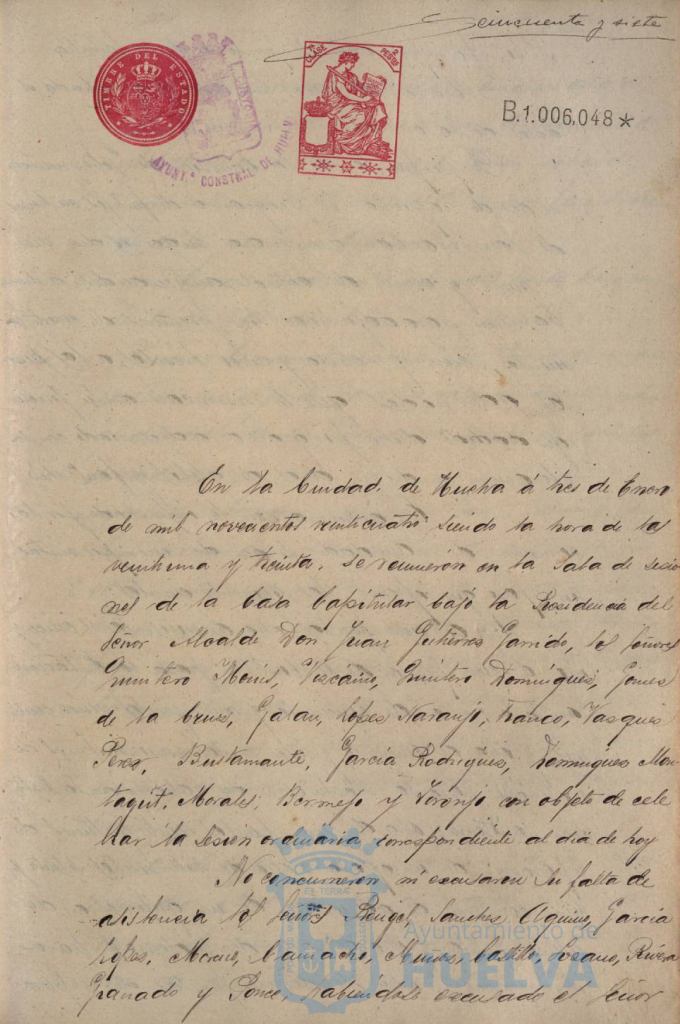 cincuenta y siete
TIMBRE DEL ESTADO
AYUNT.º CONSTNAL. DE HUELVA
7ª CLASE 2 PESTAS
B.1.006,048*
En la Ciudad de Huelva á tres de Enero
de mil novecientos veinticuatro siendo la hora de las
veintiuna y treinta, se reunieron en la Sala de sesio
nes de la Casa Capitular bajo la Presidencia del
Señor Alcalde Don Juan Gutiérrez Garrido, los Señores
Quintero Monis, Vizcaíno, Quintero Domínguez, Gómez
de la Cruz, Galan, López Naranjo, Franco, Vazquez
Perez, Bustamante, García Rodríguez, Domínguez Mon
tagut, Morales, Bermejo y Toronjo con objeto de cele
brar la sesion ordinaria correspondiente al día de hoy
No concurrieron ni excusaron su falta de
asistencia los Señores Rengel, Sanchez Aquino, García
López, Moreno, Camacho, Muñoz, Castillo, Lozano, Rivera
Granado y Ponce, habiéndose excusado el Señor
Ayuntamiento de
HUELVA